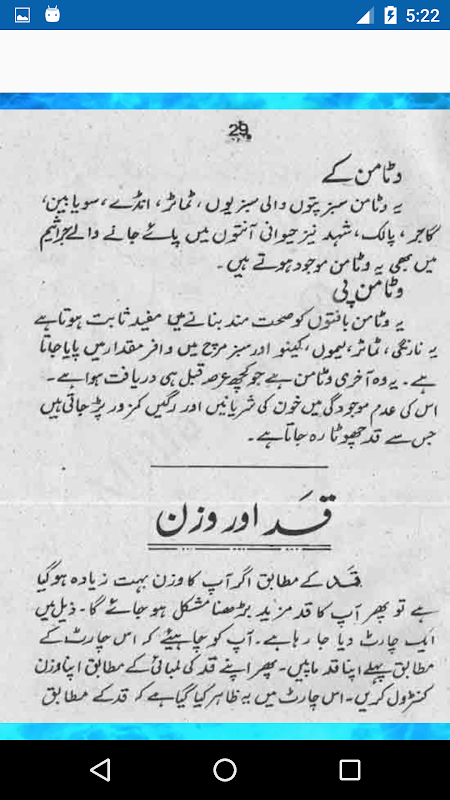 5:22
29
وٹامن کے
یہ وٹامن سبز پتوں والی سبزیوں، ٹماٹر، انڈے، سویا بین،
گاجر، پالک، شہد نیز حیوانی آنتوں میں پائے جانے والے جراثیم
میں بھی یہ وٹامن موجود ہوتے ہیں۔
وٹامن پی
یہ وٹامن بافتوں کو صحت مند بنانے میں مفید ثابت ہوتا ہے
یہ نارنگی، ٹماٹر، لیموں، کینو اور سبز مرچ میں وافر مقدار میں پایا جاتا
ہے۔ یہ وہ آخری وٹامن ہے جو کچھ عرصہ قبل ہی دریافت ہوا ہے۔
اس کی عدم موجودگی میں خون کی شریانیں اور رگیں کمزور پڑ جاتی ہیں
جس سے قد چھوٹا رہ جاتا ہے۔
قد اور وزن
قد کے مطابق اگر آپ کا وزن بہت زیادہ ہو گیا
ہے تو پھر آپ کا قد مزید بڑھنا مشکل ہو جائے گا۔ ذیل میں
ایک چارٹ دیا جا رہا ہے۔ آپ کو چاہیئے کہ اس چارٹ کے
مطابق پہلے اپنا قد ماپیں۔ پھر اپنے قد کی لمبائی کے مطابق اپنا وزن
کنٹرول کریں۔ اس چارٹ میں یہ ظاہر کیا گیا ہے کہ قد کے مطابق